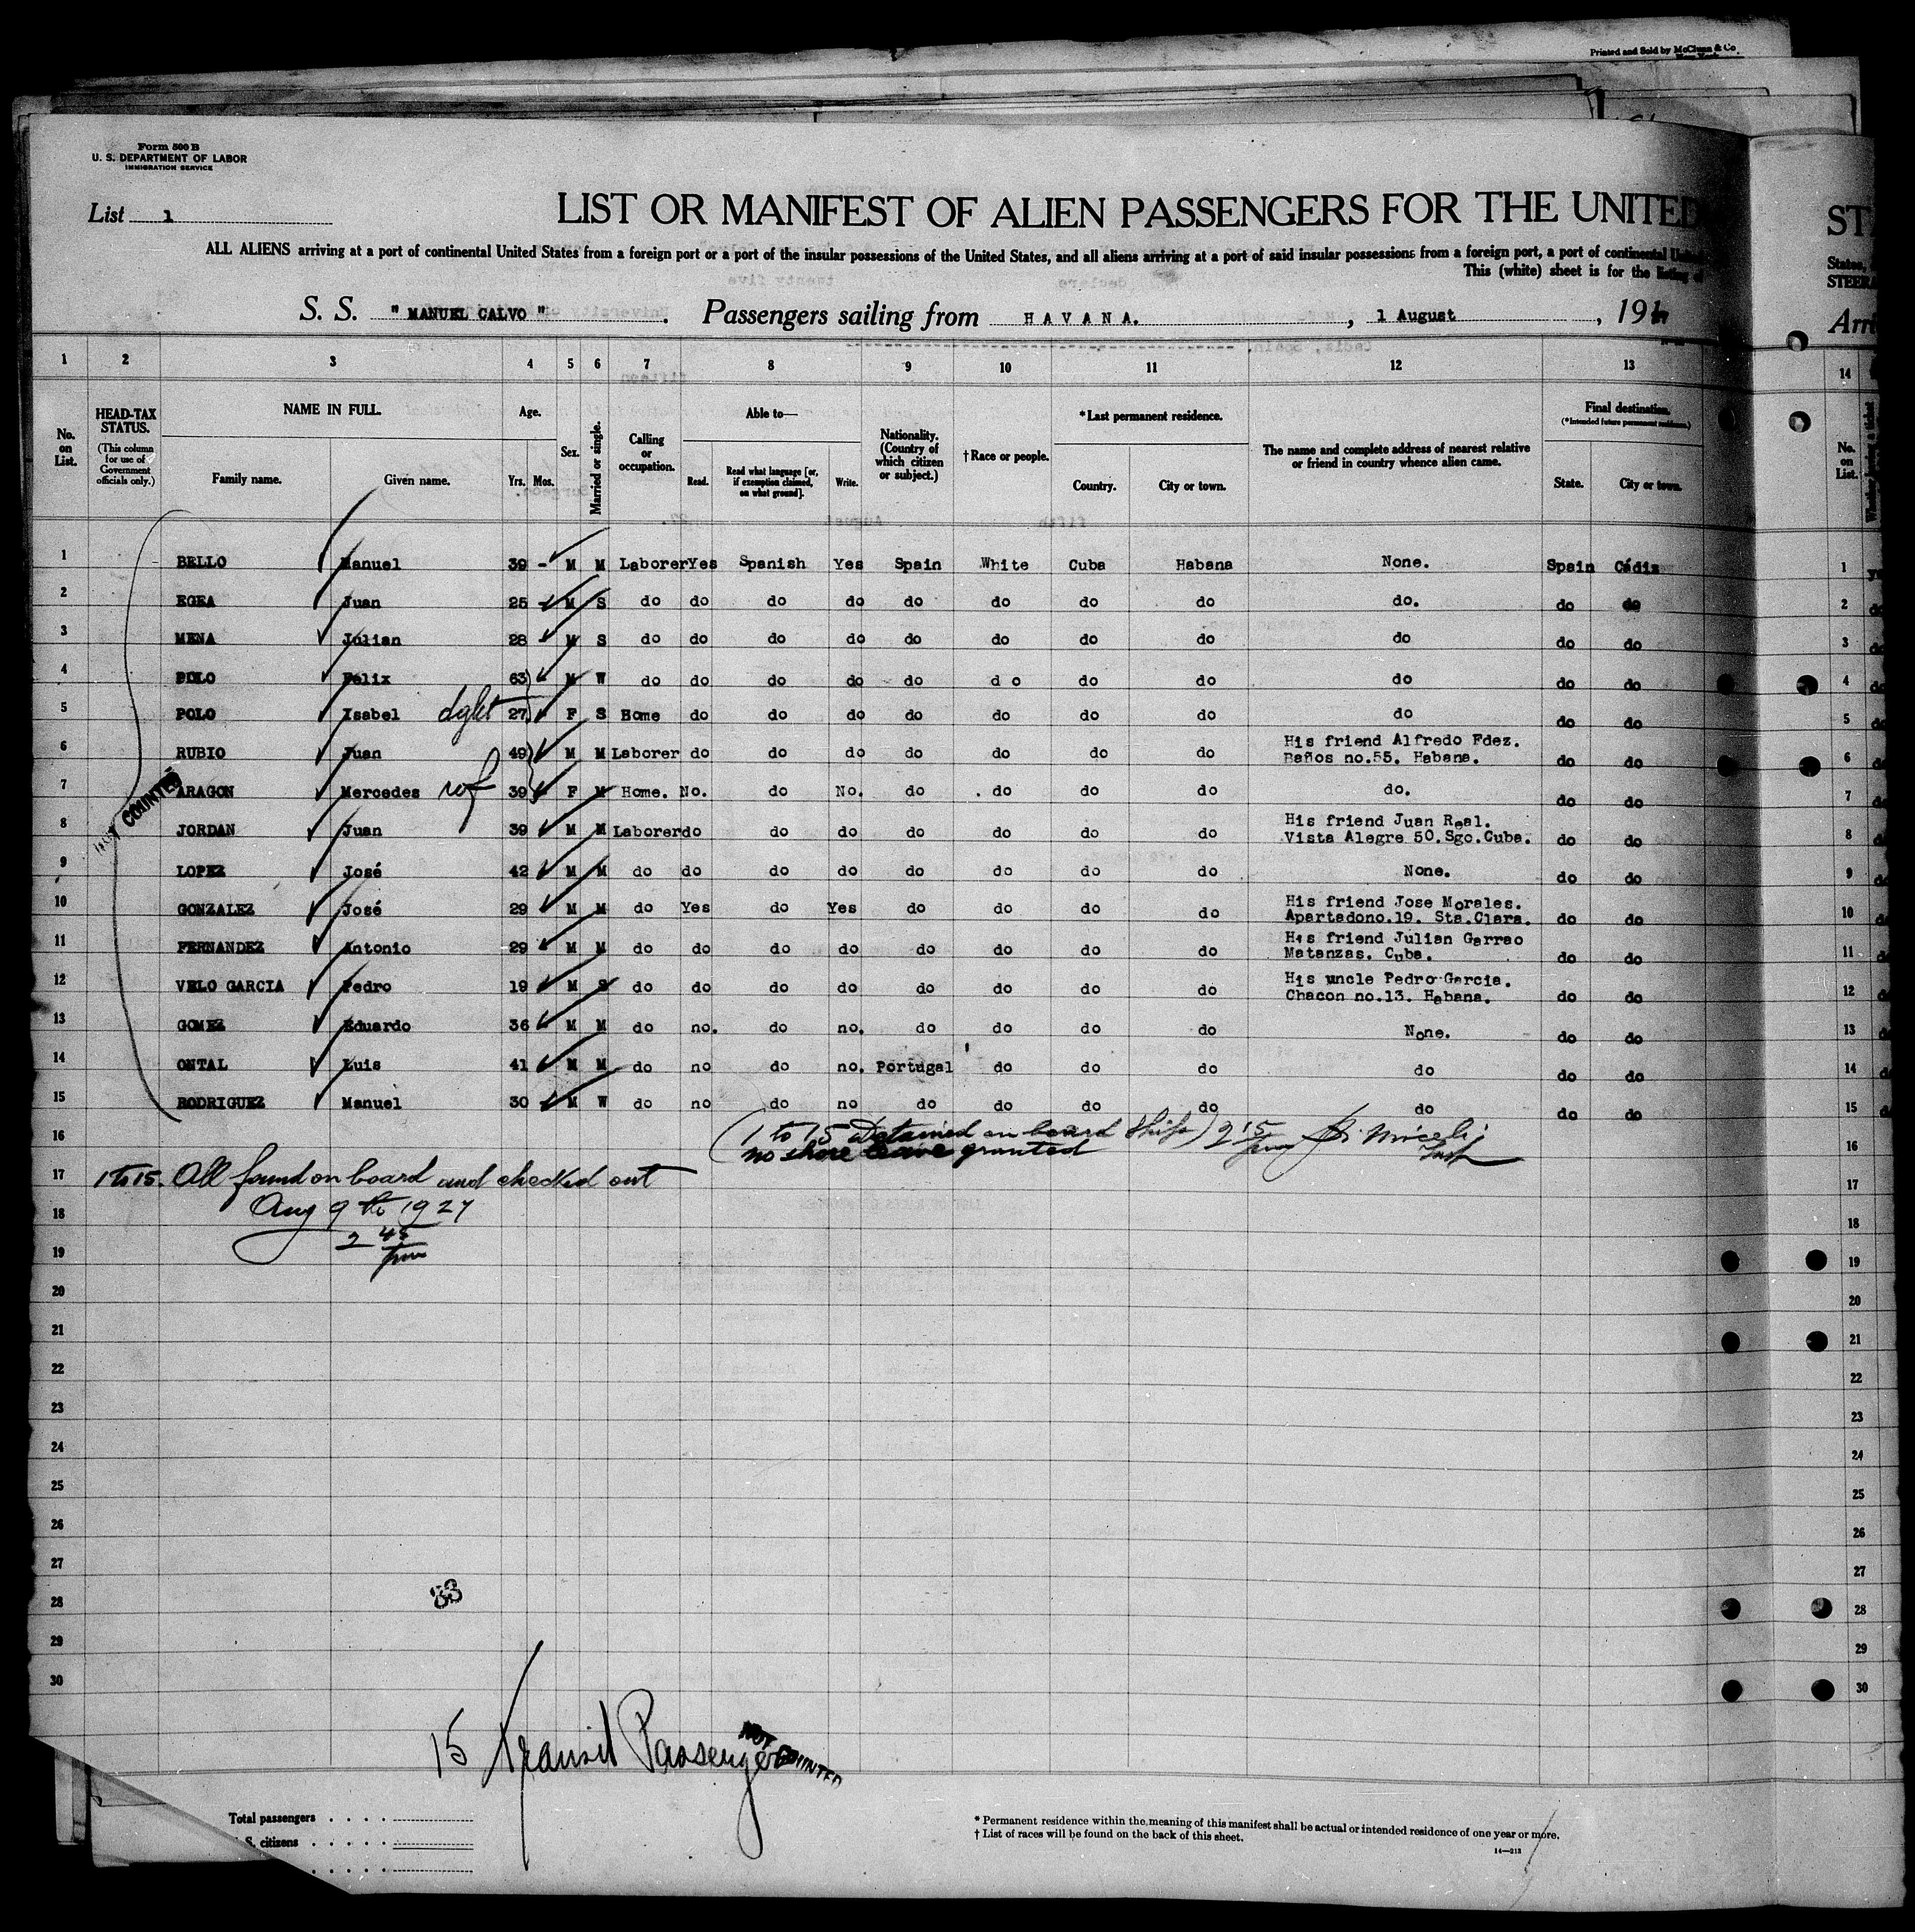 Printed and Sold by McClunn & Co
Form 500 B
U. S. DEPARTMENT OF LABOR
IMMIGRATION SERVICE
List 1
LIST OR MANIFEST OF ALIEN PASSENGERS FOR THE UNITED
ALL ALIENS arriving at a port of continental United States from a foreign port or a port of the insular possessions of the United States, and all aliens arriving at a port of said insular possessions from a foreign port, a port of continental
This (white) sheet is for the listing of
S. S. " MANUEL CALVO ". Passengers sailing from HAVANA. , 1 August , 191
1 2 3 4 5 6 7 8 9 10 11 12 13 14
No. on List.
HEAD-TAX STATUS. (This column for use of Government officials only.)
NAME IN FULL. Family name. Given name.
Age. Yrs. Mos.
Sex.
Married or single.
Calling or occupation.
Able to— Read. Read what language [or, if exemption claimed, on what ground]. Write.
Nationality. (Country of which citizen or subject.)
†Race or people.
*Last permanent residence. Country. City or town.
The name and complete address of nearest relative or friend in country whence alien came.
Final destination. (*Intended future permanent residence.) State. City or town.
No. on List.
1 BELLO Manuel 39 - M M Laborer Yes Spanish Yes Spain White Cuba Habana None. Spain Cádiz 1
2 EGEA Juan 25 M S do do do do do do do do do. do do 2
3 MENA Julian 28 M S do do do do do do do do do do do 3
4 POLO Felix 63 M W do do do do do d o do do do do do 4
5 POLO Isabel dght 27 F S Home do do do do do do do do do do 5
6 RUBIO Juan 49 M M Laborer do do do do do do do His friend Alfredo Fdez. Baños no.55. Habana. do do 6
7 ARAGON Mercedes wf 39 F M Home. No. do No. do do do do do. do do 7
8 JORDAN Juan 39 M M Laborer do do do do do do do His friend Juan Real. Vista Alegre 50.Sgo.Cuba. do do 8
9 LOPEZ José 42 M M do do do do do do do do None. do do 9
10 GONZALEZ José 29 M M do Yes do Yes do do do do His friend Jose Morales. Apartadono.19. Sta.Clara. do do 10
11 FERNANDEZ Antonio 29 M M do do do do do do do do His friend Julian Garrao Matanzas. Cuba. do do 11
12 VELO GARCIA Pedro 19 M S do do do do do do do do His uncle Pedro Garcia. Chacon no.13. Habana. do do 12
13 GOMEZ Eduardo 36 M M do no. do no. do do do do None. do do 13
14 ONTAL Luis 41 M M do no do no. Portugal do do do do do do 14
15 RODRIGUEZ Manuel 30 M W do no do no do do do do do do do 15
COUNTED
16 (1 to 15 Detained on board ship) 2 15 pm 16
no shore leave granted
17 1 to 15. All found on board and checked out 17
18 Aug 9th 1927 18
19 2 45 pm 19
20 20
21 21
22 22
23 23
24 24
25 25
26 26
27 27
28 28
29 29
30 30
33
15 Transit Passengers
NOT COUNTED
Total passengers
S. citizens
* Permanent residence within the meaning of this manifest shall be actual or intended residence of one year or more.
† List of races will be found on the back of this sheet.
14—213